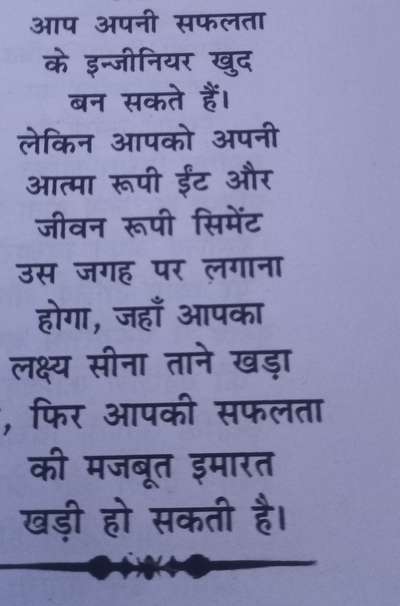 आप अपनी सफलता
के इन्जीनियर खुद
बन सकते हैं।
लेकिन आपको अपनी
आत्मा रूपी ईंट और
जीवन रूपी सिमेंट
उस जगह पर लगाना
होगा, जहाँ आपका
लक्ष्य सीना ताने खड़ा
, फिर आपकी सफलता
की मजबूत इमारत
खड़ी हो सकती है।